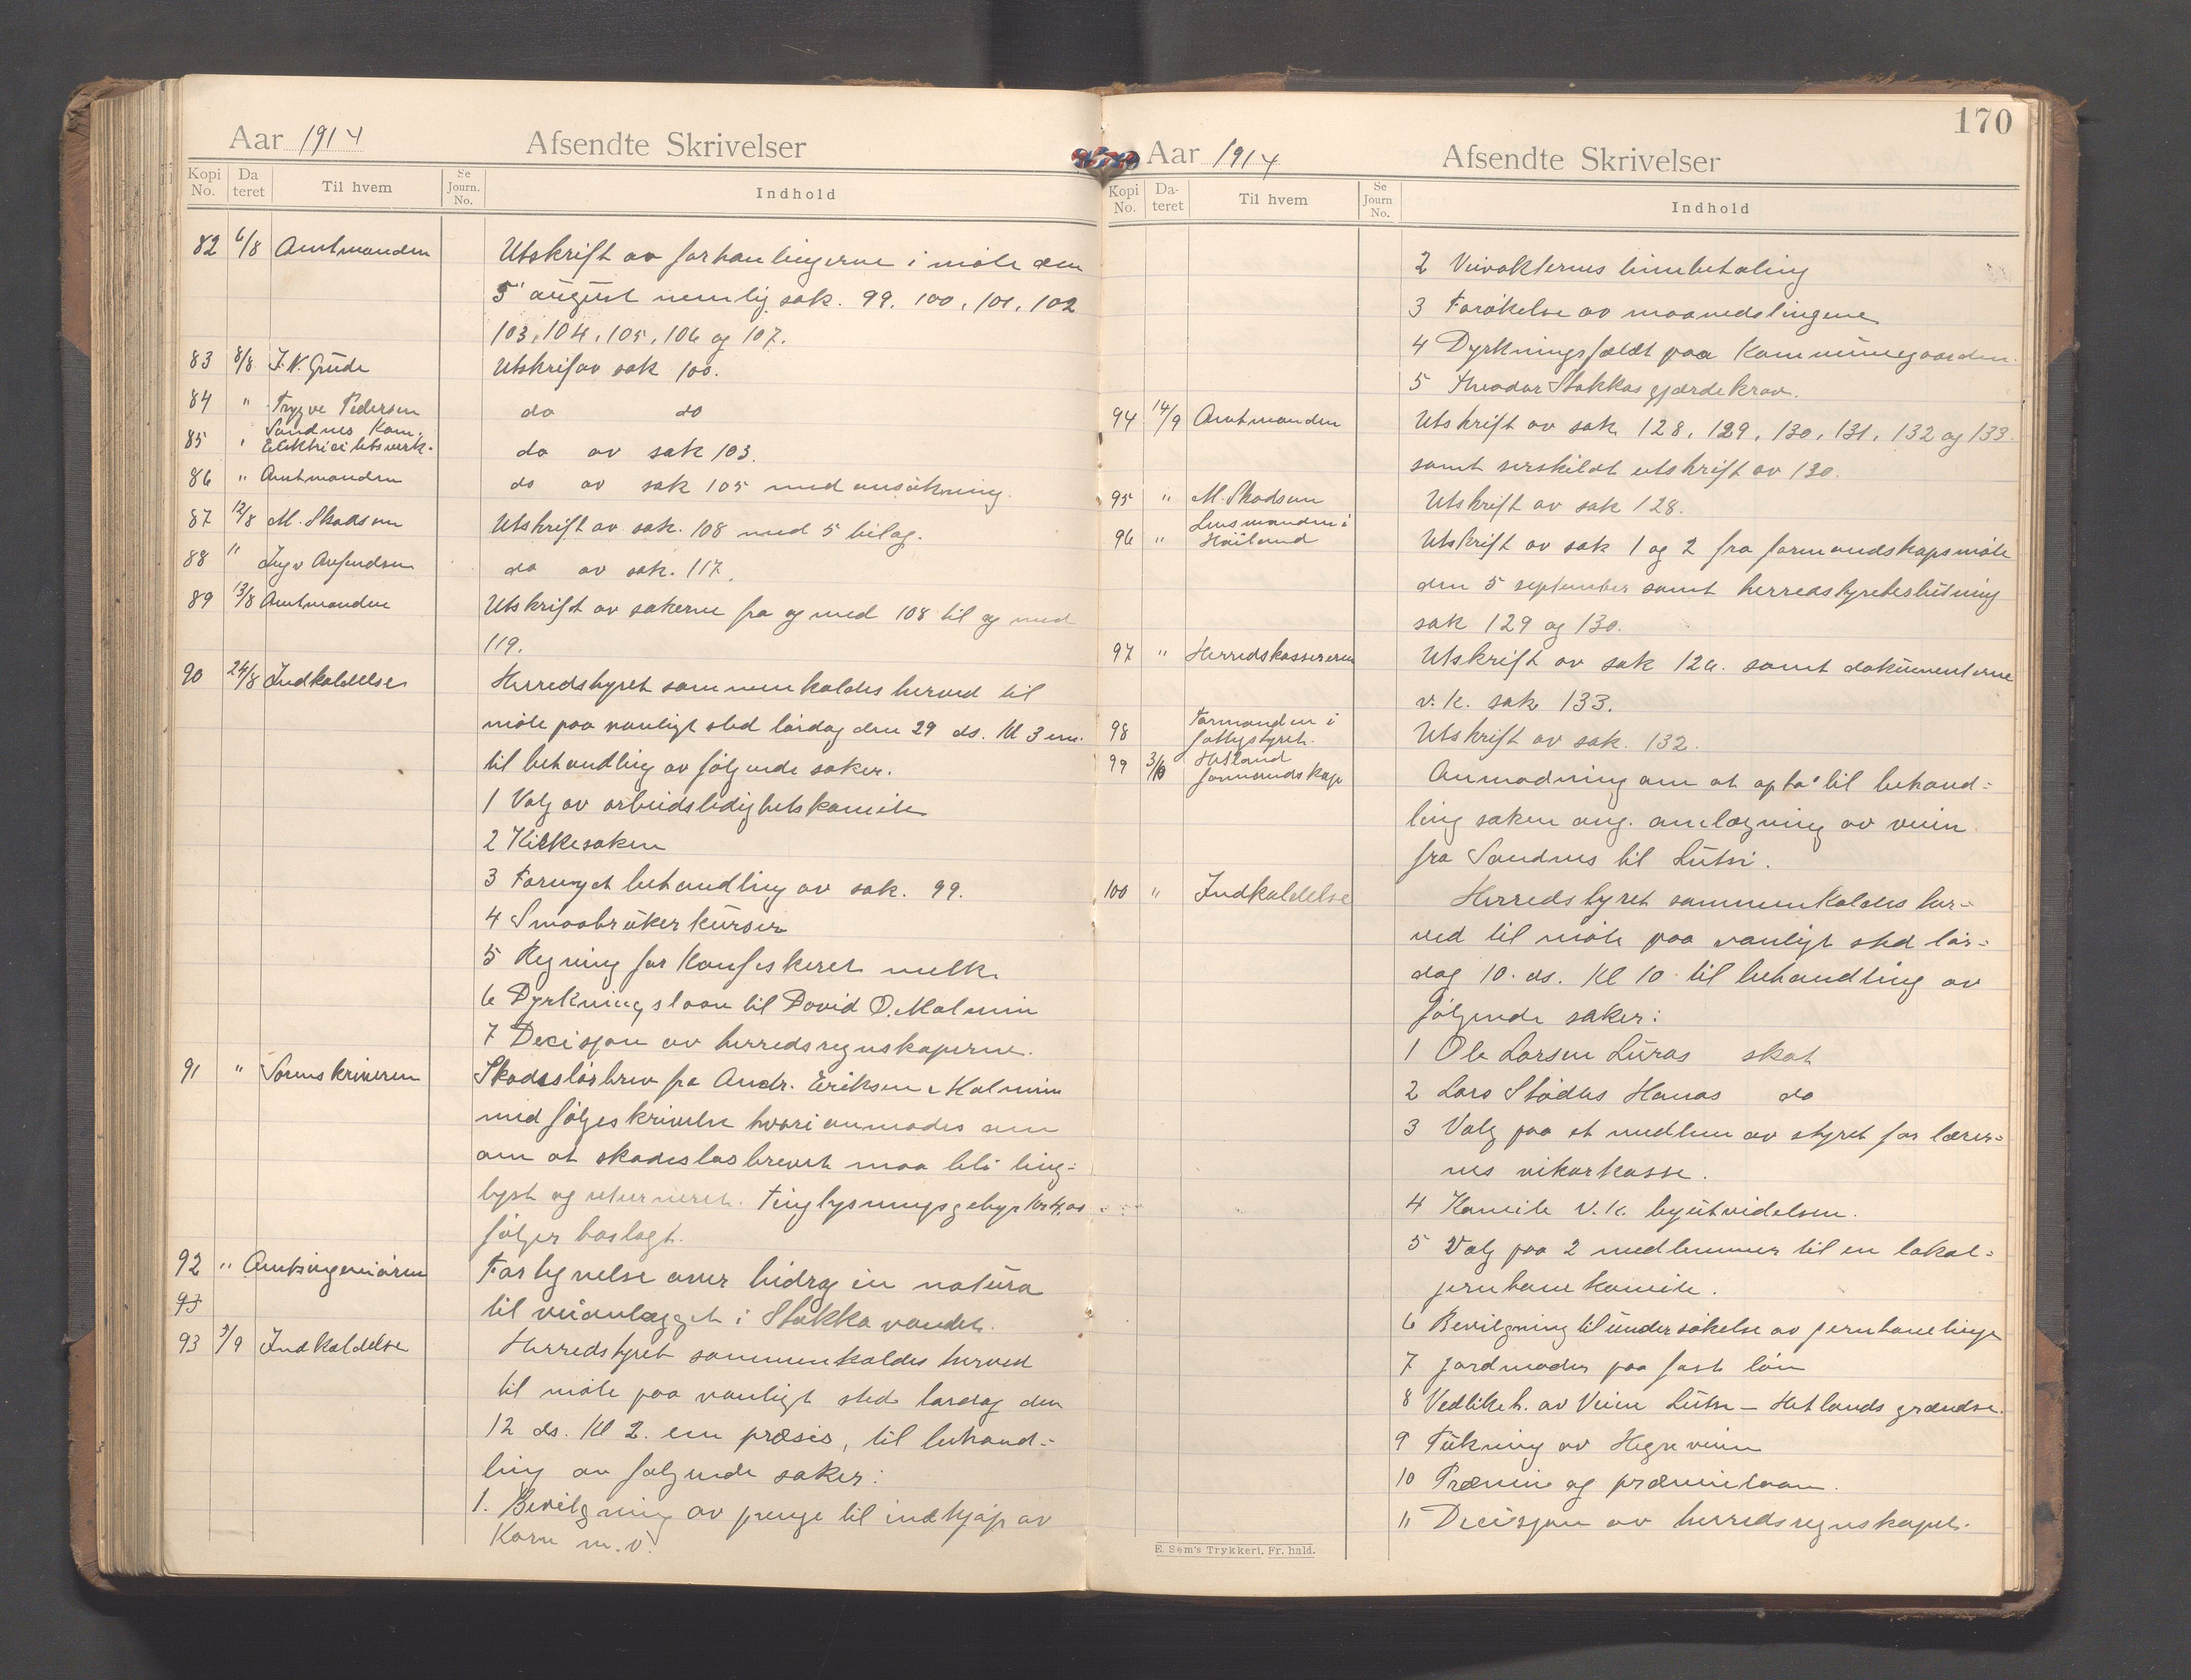 Aar 1914 Afsendte Skrivelser
Kopi No. Da teret Til hvem Se Journ. No. Indhold
82 6/8 Amtmanden Utskrift av forhanlingerne i møte den
5' august nemlig sak. 99. 100, 101, 102
103, 104, 105, 106 og 107.
83 8/8 J. N. Grude Utskrif av sak 100.
84 " Trygve Pedersen do do
85 " Sandnes Kom. Elektricitetsverk. do av sak 103.
86 " Amtmanden do av sak 105 med ansøkning.
87 12/8 M. Skadsem Utskrift av sak. 108 med 5 bilag.
88 " do av sak. 117.
89 13/8 Amtmanden Utskrift av sakerne fra og med 108 til og med
119.
90 24/8 Indkaldelse Herredstyret sammenkaldes herved til
møte paa vanligt sted lørdag den 29 ds. Kl 3 em.
til behandling av følgende saker.
1 Valg av arbeidsledighetskomite
2 Kirkesaken
3 Fornyet behandling av sak. 99.
4 Smaabrukerkurser
5 Regning for Konfiskeret melk.
6 Dyrkningslaan til David O. Malmin
7 Decisjon av herredsregnskaperne.
91 " Sorenskriveren Skadesløsbrev fra Andr. Eriksen Malmin
med følgeskrivelse hvori anmodes om
om at skadesløsbrevet maa bli ting-
lyst og returneret. Tinglysningsgebyr Kr 4,00
følger vaslagt.
92 " Amtsingeniøren Fortegnelse over bidrag in natura
93 til veianlægget i Stokkavandet.
93 5/9 Indkaldelse Herredstyret sammenkaldes herved
til møte paa vanligt sted lørdag den
12 ds. Kl 2. em præsis, til behand-
ling av følgende saker:
1. Bevilgning av penge til indkjøp av
Korn m.v.
170
Aar 1914 Afsendte Skrivelser
Kopi No. Da- teret Til hvem Se Journ No. Indhold
2 Veivokternes timebetaling
3 Forøkelse av maanedslingene
4 Dyrkningsfeldt paa Kommunegaarden.
5 Theodor Stokkas gjærdekrav.
94 14/9 Amtmanden Utskrift av sak 128, 129, 130, 131, 132 og 133
samt særskildt utskrift av 130.
95 " M. Skadsem Utskrift av sak 128.
96 " Lensmanden i Høiland Utskrift av sak 1 og 2 fra formandskapsmøte
den 5 september samt herredstyrebeslutning
sak 129 og 130.
97 " Herredskassereren Utskrift av sak 12a. samt dokumenterne
v.k. sak 133.
98 Formanden i fattigstyret. Utskrift av sak. 132.
99 3/10 Hetland formandskap Anmodning om at opta til behand-
ling saken ang. omlægning av veien
fra Sandnes til Lutsi.
100 " Indkaldelse Herredstyret sammenkaldes her-
ved til møte paa vanligt sted lør-
dag 10. ds. Kl 10. til behandling av
følgende saker:
1 Ole Larsen Luras skat
2 Lars Stødles Hanas do
3 Valg paa et medlem av styret for lærer-
nes vikarkasse.
4 Komite v.k. byutvidelsen.
5 Valg paa 2 medlemmer til en lokal-
jernbanekomite.
6 Bevilgning til undersøkelse av jernbanelinje
7 Jordmødes paa fast løn
8 Vedlikeh. av Veien Lutsi - Hetlands grændse.
9 Pukning av Hegreveien
10 Præmie og præmielaan.
11 Decisjon av herredsregnskapet.
E. Sem's Trykkeri, Fr. hald.